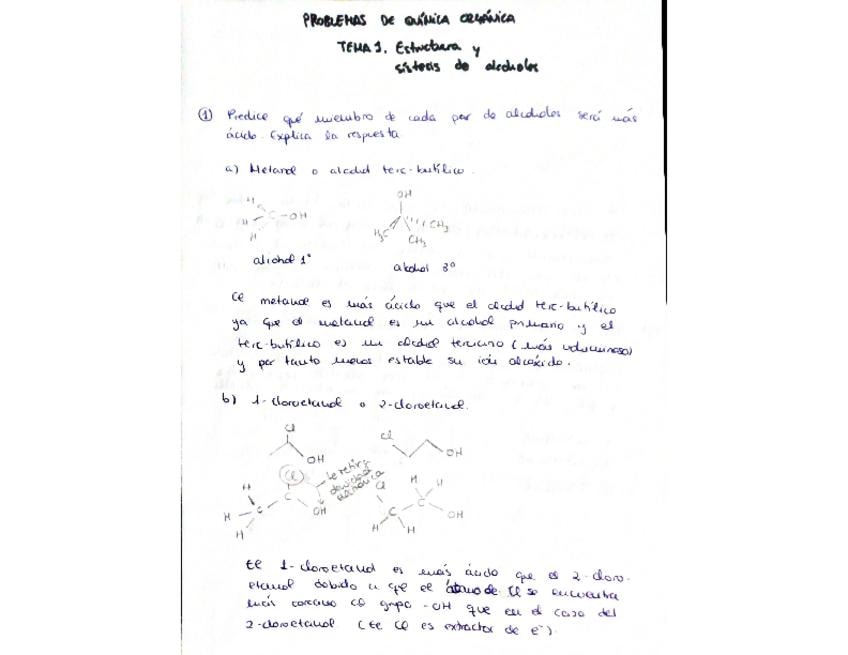 PROBLEMAS DE QUÍMICA ORGÁNICA
TEMA 1. Estructura y
síntesis de alcoholes
① Predice qué miembro de cada par de alcoholes será más
ácido. Explica la respuesta
a) Metanol o alcohol terc-butílico.
H
H C-OH
H
OH
H3C CH3
CH3
alcohol 1º
alcohol 3º
El metanol es más ácido que el alcohol terc-butílico
ya que el metanol es un alcohol primario y el
terc-butílico es un alcohol terciario (más voluminoso)
y por tanto menos estable su ión alcóxido.
b) 1-cloroetanol o 2-cloroetanol.
Cl
OH
Cl
OH
Cl
le retira
densidad
electrónica
H
H C C OH
H
Cl H H
C C OH
H H
El 1-cloroetanol es más ácido que el 2-cloro-
etanol debido a que el átomo de Cl se encuentra
más cercano al grupo -OH que en el caso del
2-cloroetanol. (El Cl es extractor de e⁻).